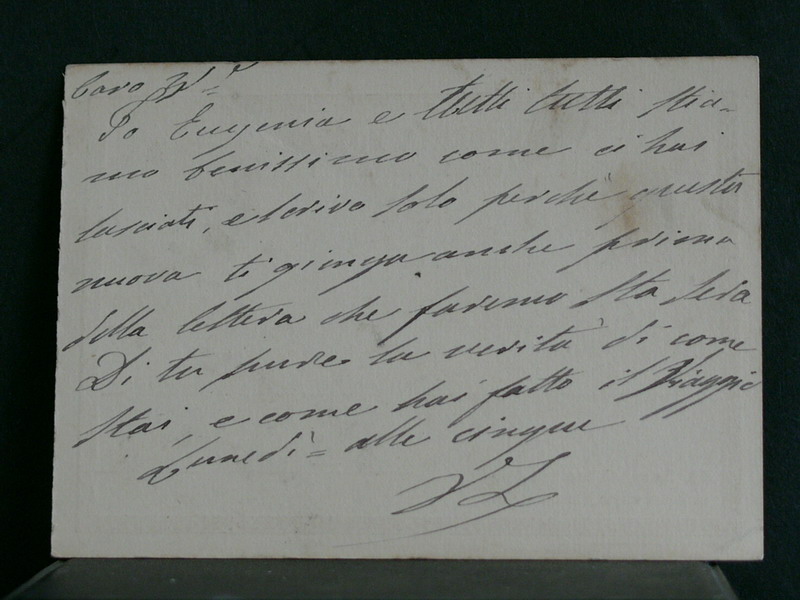 Caro
Io Eugenia e tutti tutti stia-
mo benissimo come ci hai
lasciati, e scrivo solo perchè questa
nuova ti giunga anche prima
della lettera che faremo sta sera
Di tu pure la verità di come
stai, e come hai fatto il Viaggio
Lunedì = alle cinque